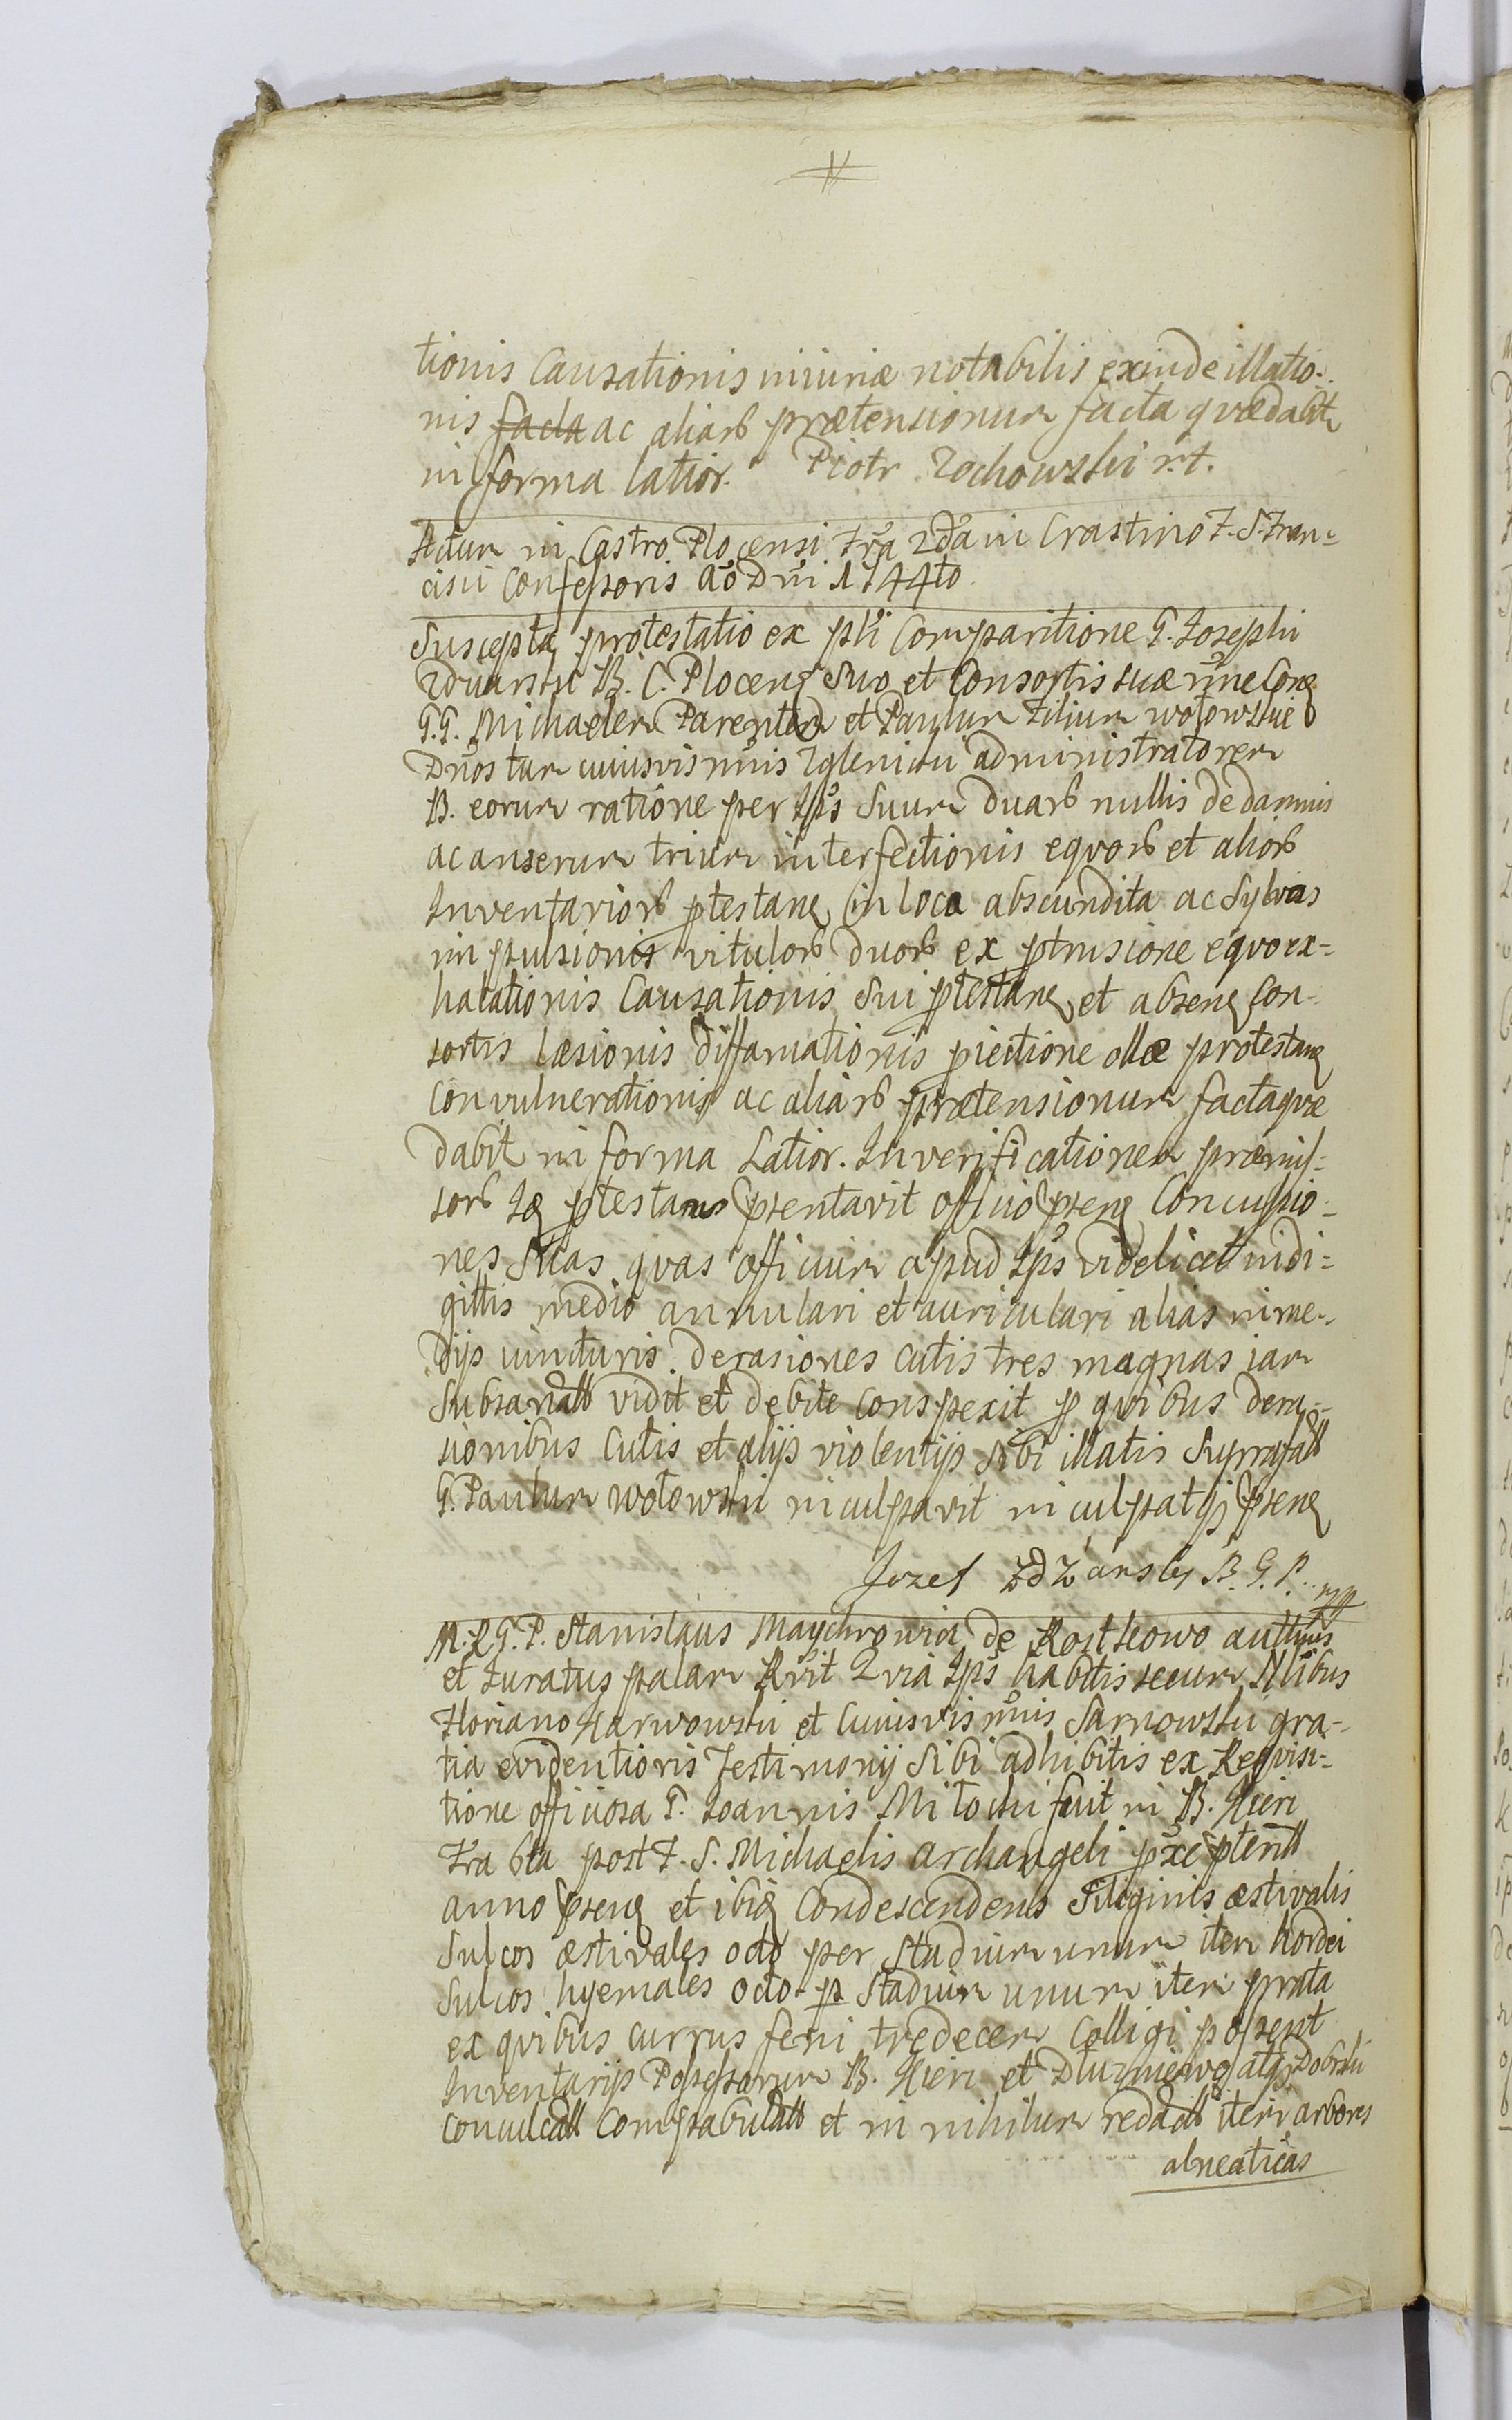 tionis Causationis iniuriæ notabilis exinde illatio-
nis facta ac aliarb prætensionum facta quæ dabitr
in forma latior. Piotr Zochowski r.t.
Actum in Castro Plocensi Fra 2da in Crastino F. S. Fran-
cisci Confessoris Ao Dni 1744to
Suscepta protestatio ex psli Comparitione G. Josephi
Zdzarski B. C. Plocens Suo et Consortis suæ nne Cora
G.G. Michaelem Parentem et Paulum Filium wołowskie
Dnos tum cuiusvis nnis Zglenicki administratorem
B. eorum ratione per Ipš Suum duarb nullis de damnis
ac anserum trium interfectionis equorb et aliorb
Inventariorb ptestans in loca abscundita ac Sylvas
impulsionis vitulorb duorb ex ptrusione equo ex-
halationis Causationis Sui ptestans et absens Con-
sortis læsionis diffamationis piectione ollæ protestans
Convulnerationis ac aliarb prætensionum facta quæ
dabit in forma Latior. In verificationem præmis-
sorb Iq ptestans psentavit officio psens Concussio-
nes Suas quas officium apud Ipš videlicet in di-
gittis medio annulari et auriculari alias in me-
dijs iuncturis derasiones cutis tres magnas iam
Subsanatt vidit et debite conspexit p quibus dera-
sionibus Cutis et alijs violentijs Sibi illatis Suprafatt
G. Paulum wołowski inculpavit inculpatqj psens
Jozef Zdzarsky B. G. P. mpp
M. R G. P. Stanislaus Maychrowicz de Rostkowo authms
et Iuratus palam Rvit Qvia Ipš habitis secum Nlibus
Floriano Karwowski et Cuiusvis nnis Sarnowski gra-
tia evidentioris Testimonij Sibi adhibitis ex Reqvisi-
tione officiosa G. Joannis Miłocki fuit in B. Kieri
Fra 6ta post F. S. Michaelis Archangeli pxe pteritt
anno psens et ibiq Condescendens Siliginis æstivalis
Sulcos æstivales octo per Stadium unum item hordei
Sulcos hyemales octo p Stadium unum item prata
ex quibus currus feni tredecem Colligi possent
Inventarijs Possessorum B. Kieri et Dluzniewo atqj Dobrski
Conculcatt Compabulatt et in nihilum redactt item arbores
alneaticas